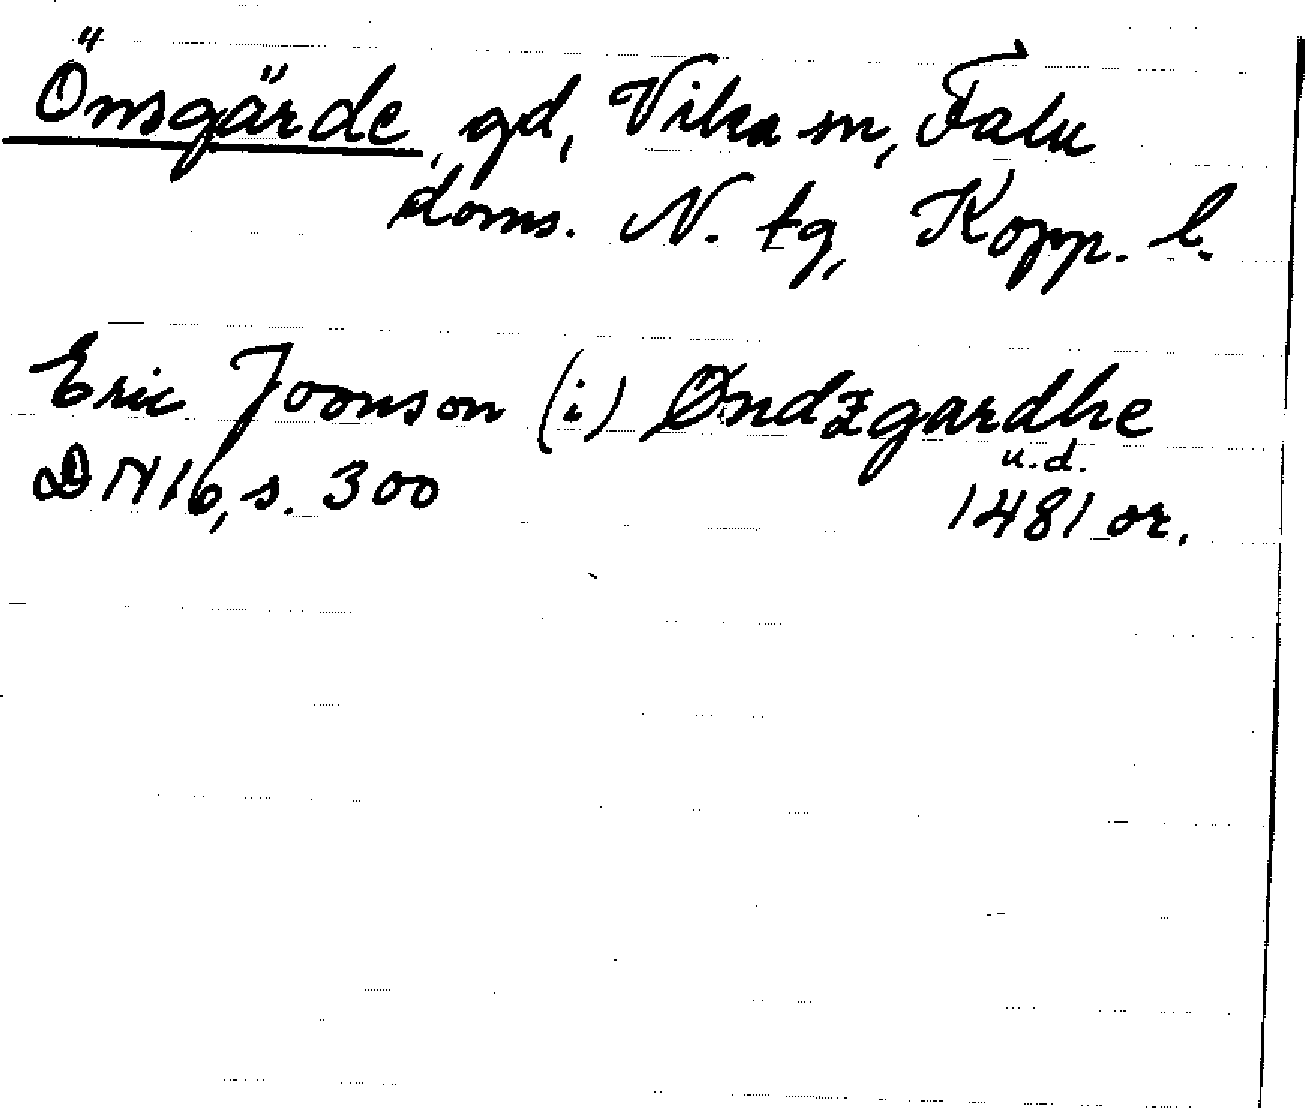 Önsgärde, gd, Vika sn, Falu
doms. N. tg, Kopp. l.
Eric Joonson (i) Øndzgardhe
u.d.
DN 16, s. 300 1481 or.